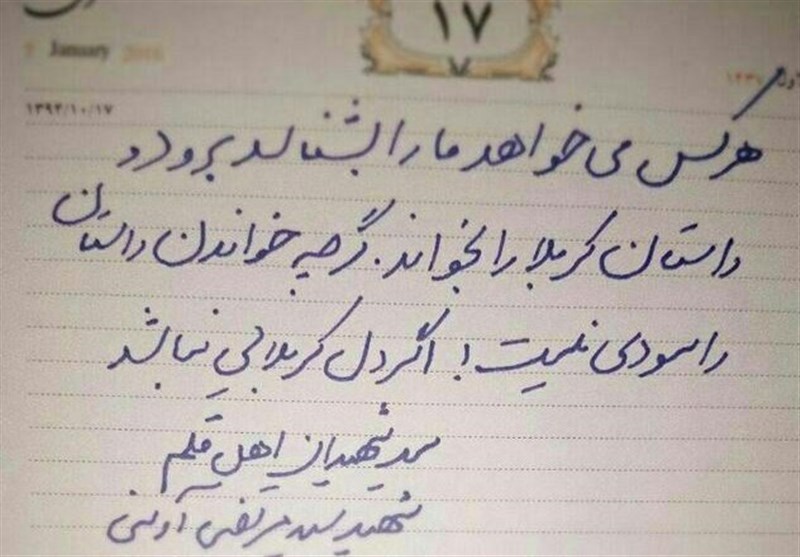 ۱۷
January
۱۳۹۴/۱۰/۱۷
هر کس می خواهد ما را بشناسد برود و
داستان کربلا را بخواند. گرچه خواندن داستان
را سودی نیست! اگر دل کربلایی نباشد
سید شهیدان اهل قلم
شهید سید مرتضی آوینی